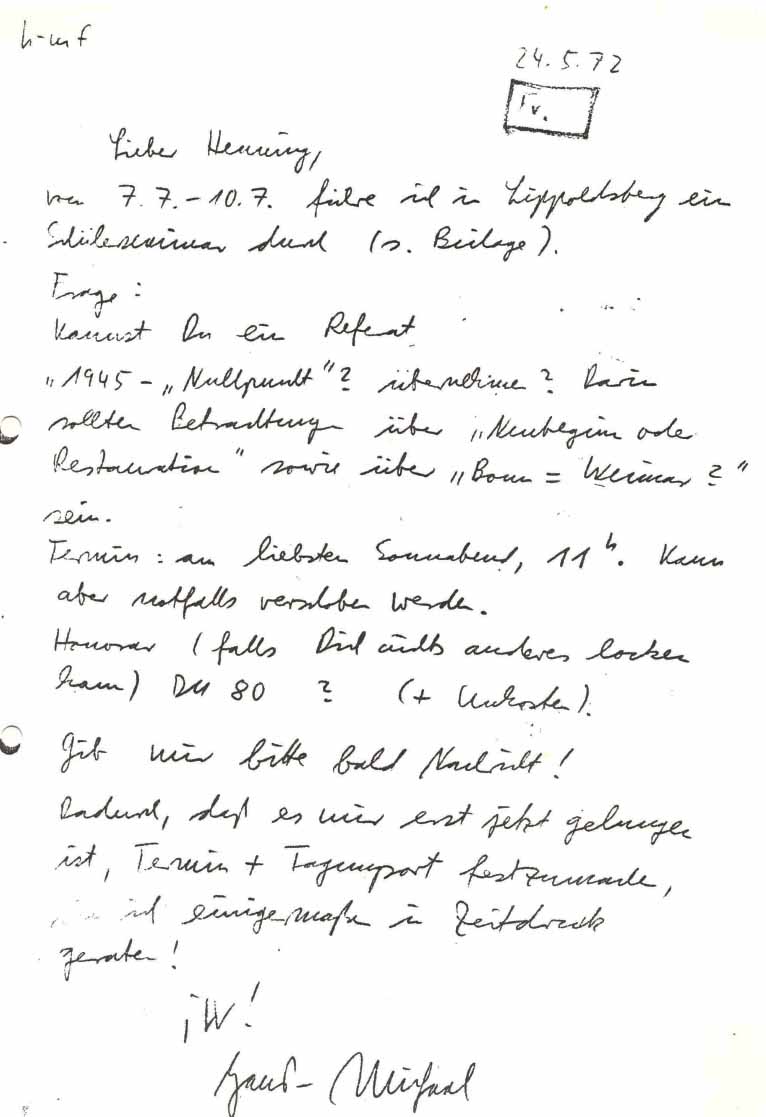 h-mf
24.5.72
Lieber Henning,
von 7.7.-10.7. führe ich in Lippoldsberg ein
Schülerseminar durch (s. Beilage).
Frage:
Kannst Du ein Referat
„1945 - „Nullpunkt"? übernehmen? Darin
sollten Betrachtungen über „Neubeginn oder
Restauration" sowie über „Bonn = Weimar?"
sein.
Termin: am liebsten Sonnabend, 11 h. Kann
aber notfalls verschoben werden.
Honorar (falls Dich nichts anderes locken
kann) DM 80 ? (+ Unkosten).
Gib mir bitte bald Nachricht!
Dadurch, daß es mir erst jetzt gelungen
ist, Termin + Tagungsort festzumachen,
ich einigermaßen in Zeitdruck
geraten!
iW!
Hans-Michael